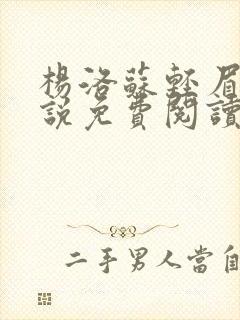 楊洛蘇輕眉
說免費閱讀
二手男人當自